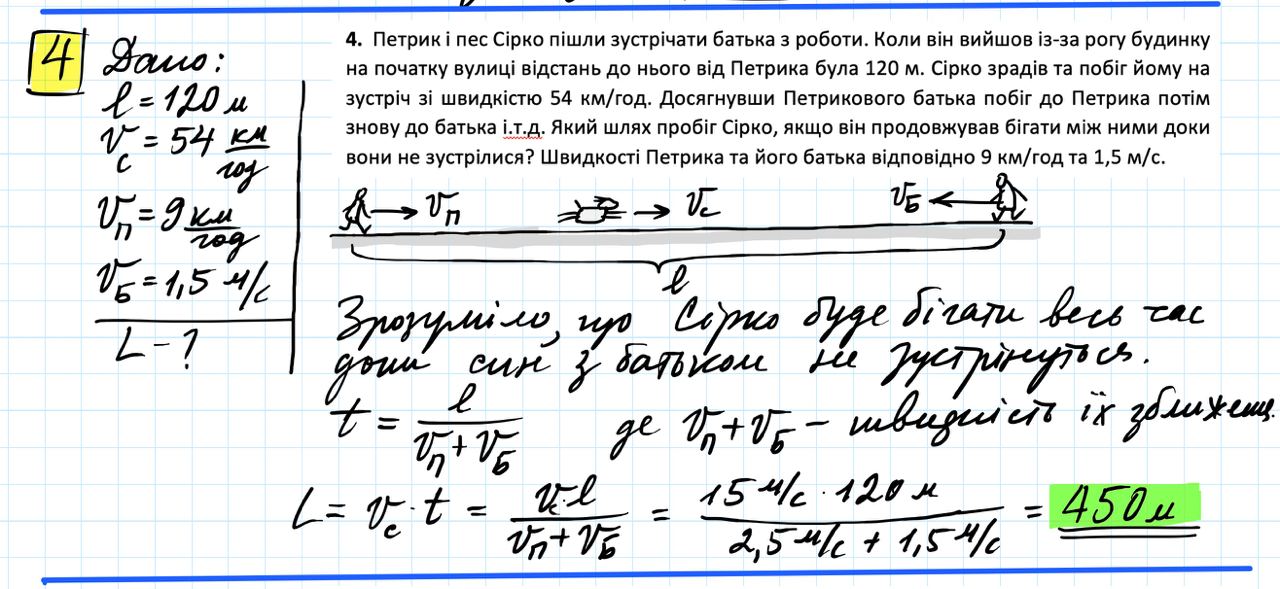 4
Дано:
l = 120 м
v_c = 54 км/год
v_П = 9 км/год
v_Б = 1,5 м/с
L - ?
4. Петрик і пес Сірко пішли зустрічати батька з роботи. Коли він вийшов із-за рогу будинку
на початку вулиці відстань до нього від Петрика була 120 м. Сірко зрадів та побіг йому на
зустріч зі швидкістю 54 км/год. Досягнувши Петрикового батька побіг до Петрика потім
знову до батька і.т.д. Який шлях пробіг Сірко, якщо він продовжував бігати між ними доки
вони не зустрілися? Швидкості Петрика та його батька відповідно 9 км/год та 1,5 м/с.
v_П v_c v_Б
l
Зрозуміло, що Сірко буде бігати весь час
доки син з батьком не зустрінуться.
t = l / (v_П + v_Б) де v_П + v_Б - швидкість їх зближенн.
L = v_c · t = v_c · l / (v_П + v_Б) = 15 м/с · 120 м / (2,5 м/с + 1,5 м/с) = 450 м